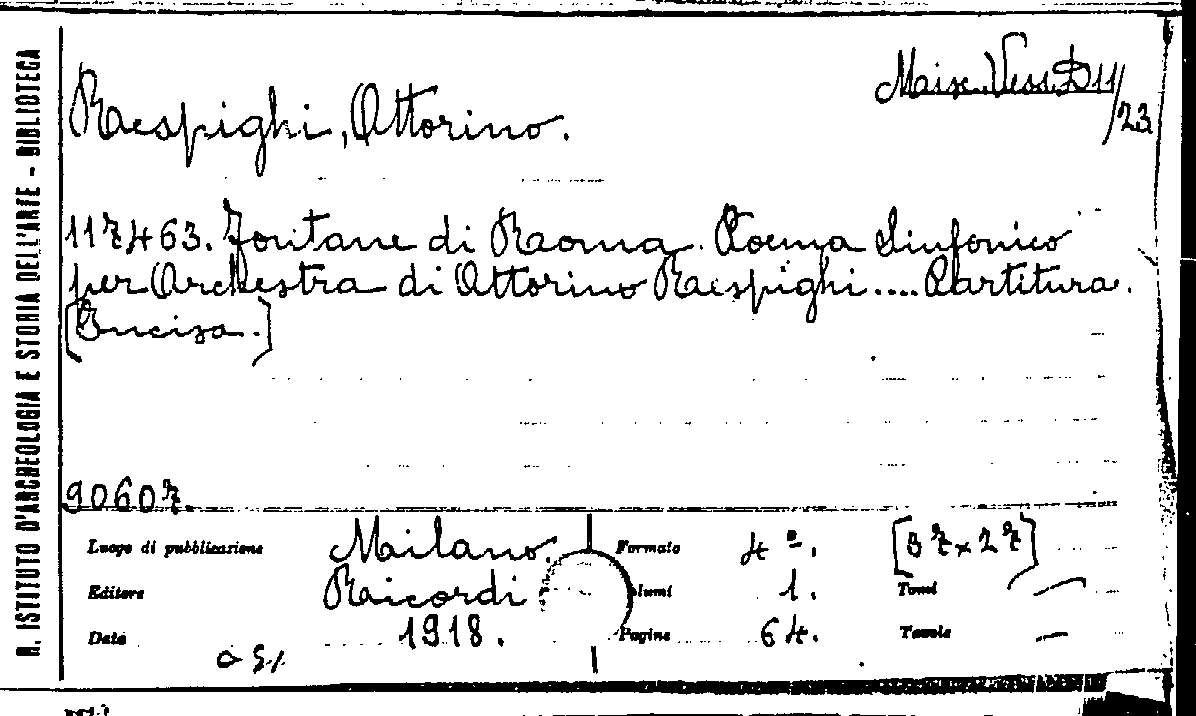 R. ISTITUTO D'ARCHEOLOGIA E STORIA DELL'ARTE - BIBLIOTECA
Maisc. Vess. D 11/23
Respighi, Ottorino.
117463. Fontane di Roma. Poema Sinfonico
per Orchestra di Ottorino Respighi.... Partitura.
[Incisa.]
90607.
Luogo di pubblicazione Milano. Formato 4º. [37x27]
Editore Ricordi Volumi 1. Tomi —
Data 1918. Pagine 64. Tavole —